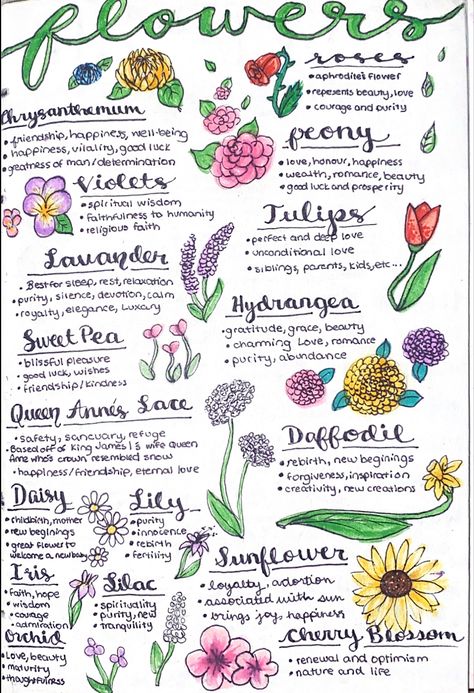 flowers
roses
• aphrodite's flower
• represents beauty, love
• courage and purity
Chrysanthemum
• friendship, happiness, well-being
• happiness, vitality, good luck
greatness of man/determination
peony
• love, honour, happiness
• wealth, romance, beauty
• good luck and prosperity
Violets
• spiritual wisdom
• faithfulness to humanity
• religious faith
Tulips
• perfect and deep love
• unconditional love
• siblings, parents, kids, etc...
Lavander
• Best for sleep, rest, relaxation
• purity, silence, devotion, calm
• royalty, elegance, luxury
Hydrangea
• gratitude, grace, beauty
• charming love, romance
• purity, abundance
Sweet Pea
• blissful pleasure
• good luck, wishes
• friendship/kindness
Queen Anne's Lace
• safety, sancuary, refuge
• Based off of King James I's wife Queen
Anne who's crown resembled snow
• happiness/friendship, eternal love
Daffodil
• rebirth, new beginings
• forgiveness, inspiration
• creativity, new creations
Daisy
• childbirth, mother
• new beginings
• great flower to
welcome a new baby
Lily
• purity
• innocence
• rebirth
• fertility
Sunflower
• loyalty, adortion
• associated with sun
• brings joy, happiness
Iris
• faith, hope
• wisdom
• courage
• admiration
Lilac
• spirituality
• purity, new
• tranquility
Orchid
• Love, beauty
• maturity
• thoughtfulness
Cherry Blossom
• renewal and optimism
• nature and life